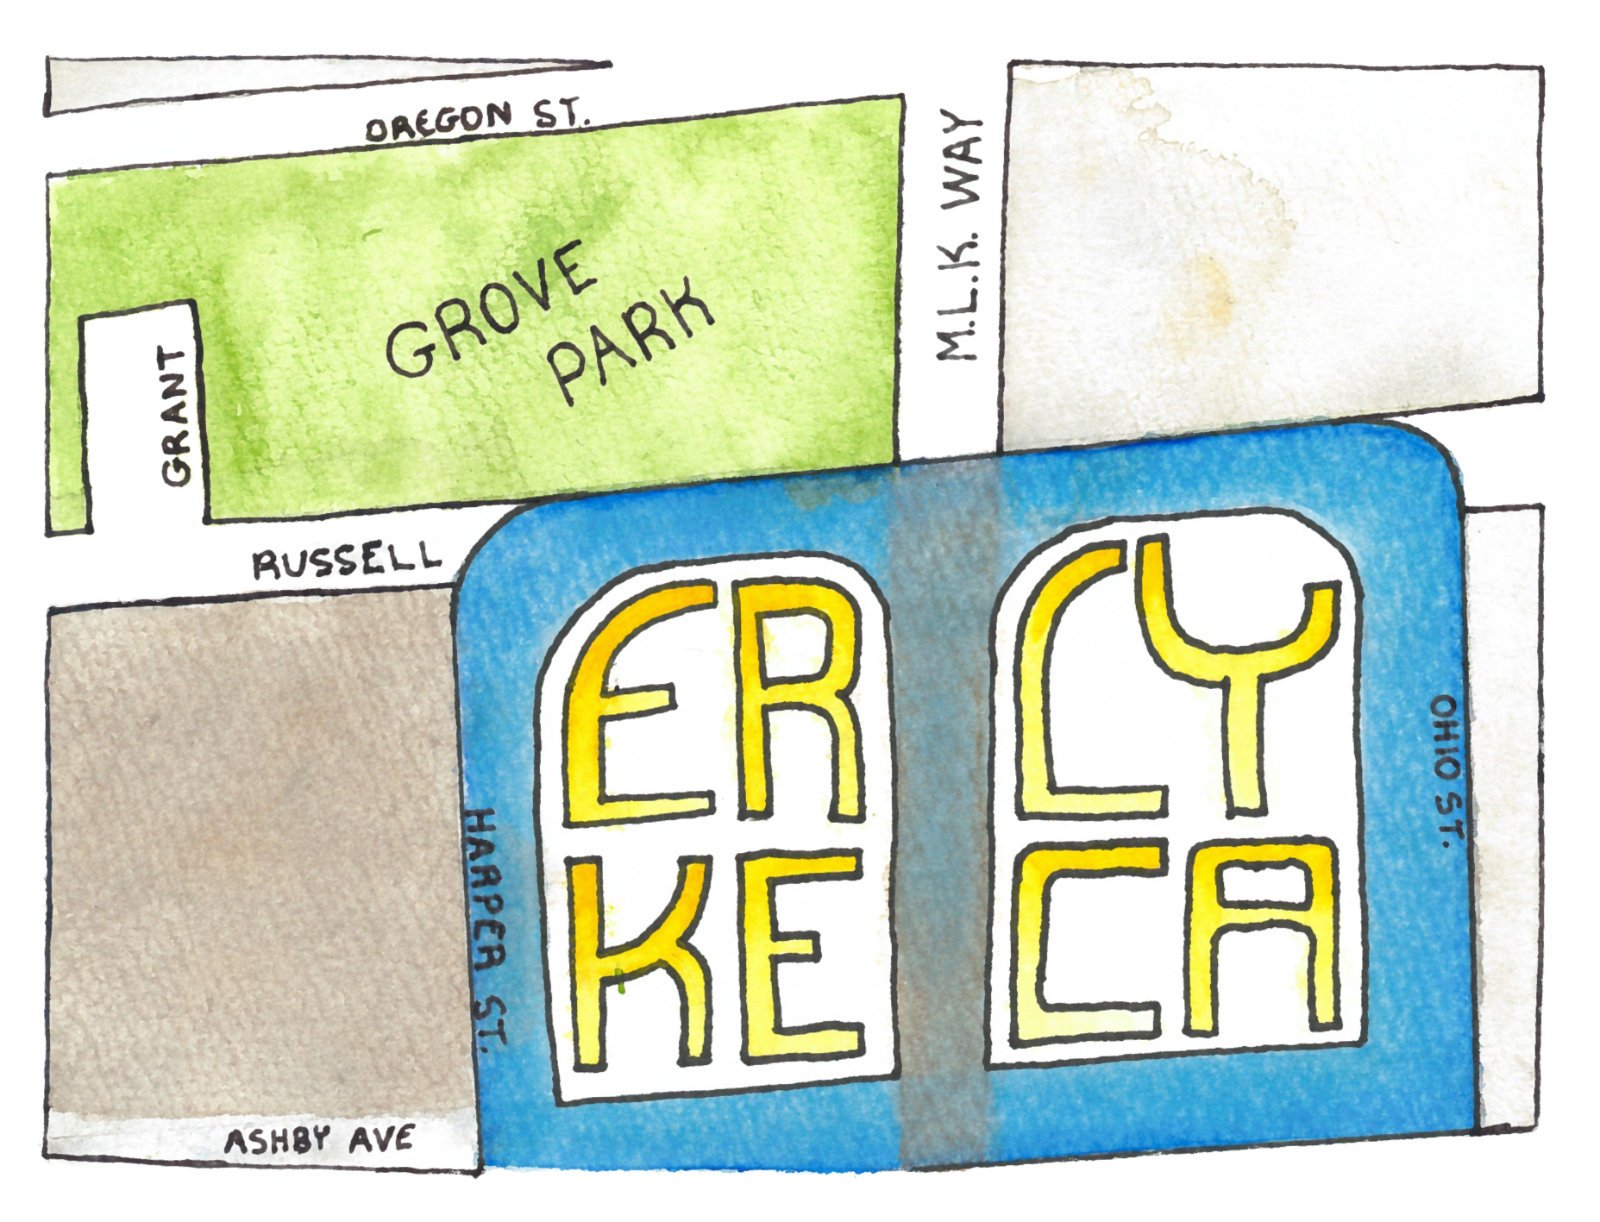 OREGON ST.
GROVE
PARK
M.L.K. WAY
GRANT
RUSSELL
ER
KE
LY
CA
HARPER ST.
OHIO ST.
ASHBY AVE